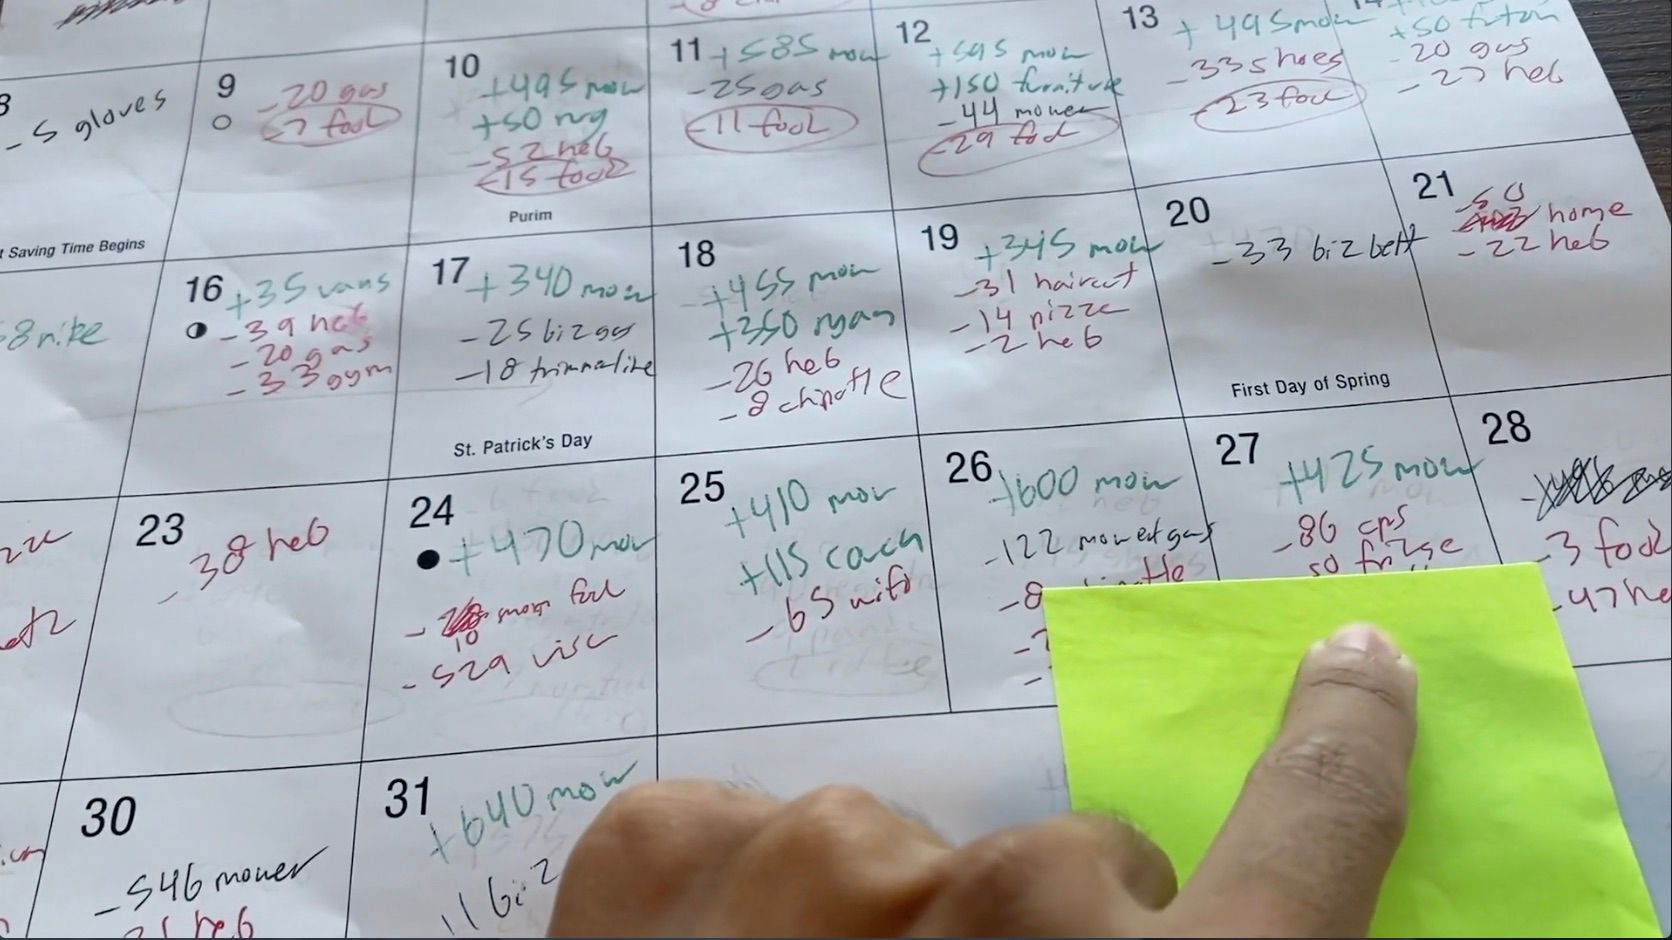 8
- 5 gloves
Saving Time Begins
9
-20 gas
-7 food
10
+495 mow
+50 rug
-52 heb
-15 food
Purim
11
+585 mow
-25 gas
-11 food
12
+595 mow
+150 furniture
-44 mower
-29 food
13
+495 mow
-33 shoes
-23 food
14
+50 futon
-20 gas
-27 heb
8 nike
16
+35 vans
-39 heb
-20 gas
-33 gym
17
+340 mow
-25 biz gas
-18 trimmer line
St. Patrick's Day
18
+455 mow
+350 ryan
-26 heb
-8 chipotle
19
+345 mow
-31 haircut
-14 pizza
-2 heb
20
-33 biz belt
First Day of Spring
21
-50
home
-22 heb
23
-38 heb
24
+470 mow
-10 mom food
-529 visa
25
+410 mow
+115 coach
-65 wifi
26
+600 mow
-122 mower gas
-8
27
+425 mow
-86 cps
50 fridge
28
-3 food
-47 he
30
-546 mower
heb
31
+640 mow
11 biz